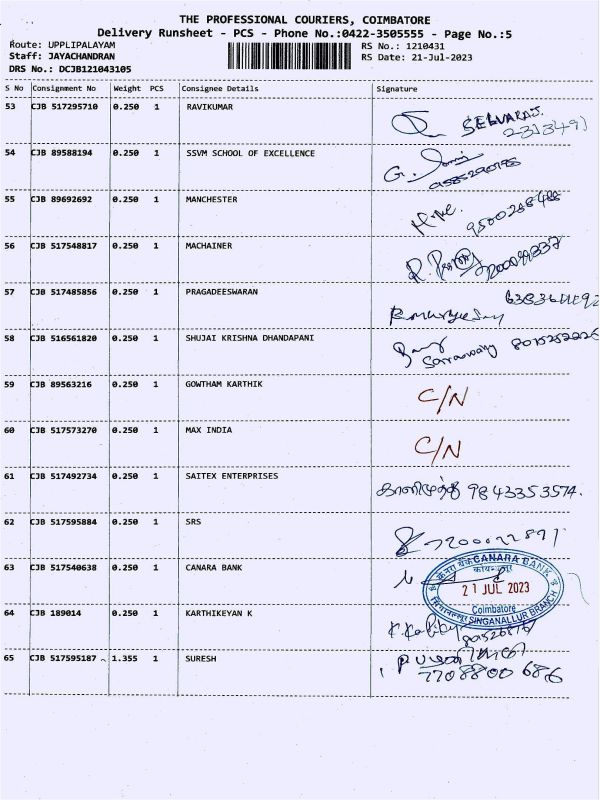 THE PROFESSIONAL COURIERS, COIMBATORE
Delivery Runsheet - PCS - Phone No.:0422-3505555 - Page No.:5
Route: UPPLIPALAYAM RS No.: 1210431
Staff: JAYACHANDRAN RS Date: 21-Jul-2023
DRS No.: DCJB121043105
S No Consignment No Weight PCS Consignee Details Signature
53 CJB 517295710 0.250 1 RAVIKUMAR
SELVARAJ.
2313491
54 CJB 89588194 0.250 1 SSVM SCHOOL OF EXCELLENCE
55 CJB 89692692 0.250 1 MANCHESTER
9500288488
56 CJB 517548817 0.250 1 MACHAINER
57 CJB 517485856 0.250 1 PRAGADEESWARAN
58 CJB 516561820 0.250 1 SHUJAI KRISHNA DHANDAPANI
59 CJB 89563216 0.250 1 GOWTHAM KARTHIK C/N
60 CJB 517573270 0.250 1 MAX INDIA C/N
61 CJB 517492734 0.250 1 SAITEX ENTERPRISES 9843353574.
62 CJB 517595884 0.250 1 SRS
63 CJB 517540638 0.250 1 CANARA BANK
CANARA BANK
21 JUL 2023
Coimbatore
SINGANALLUR BRANCH
64 CJB 189014 0.250 1 KARTHIKEYAN K
65 CJB 517595187 1.355 1 SURESH
7708800686